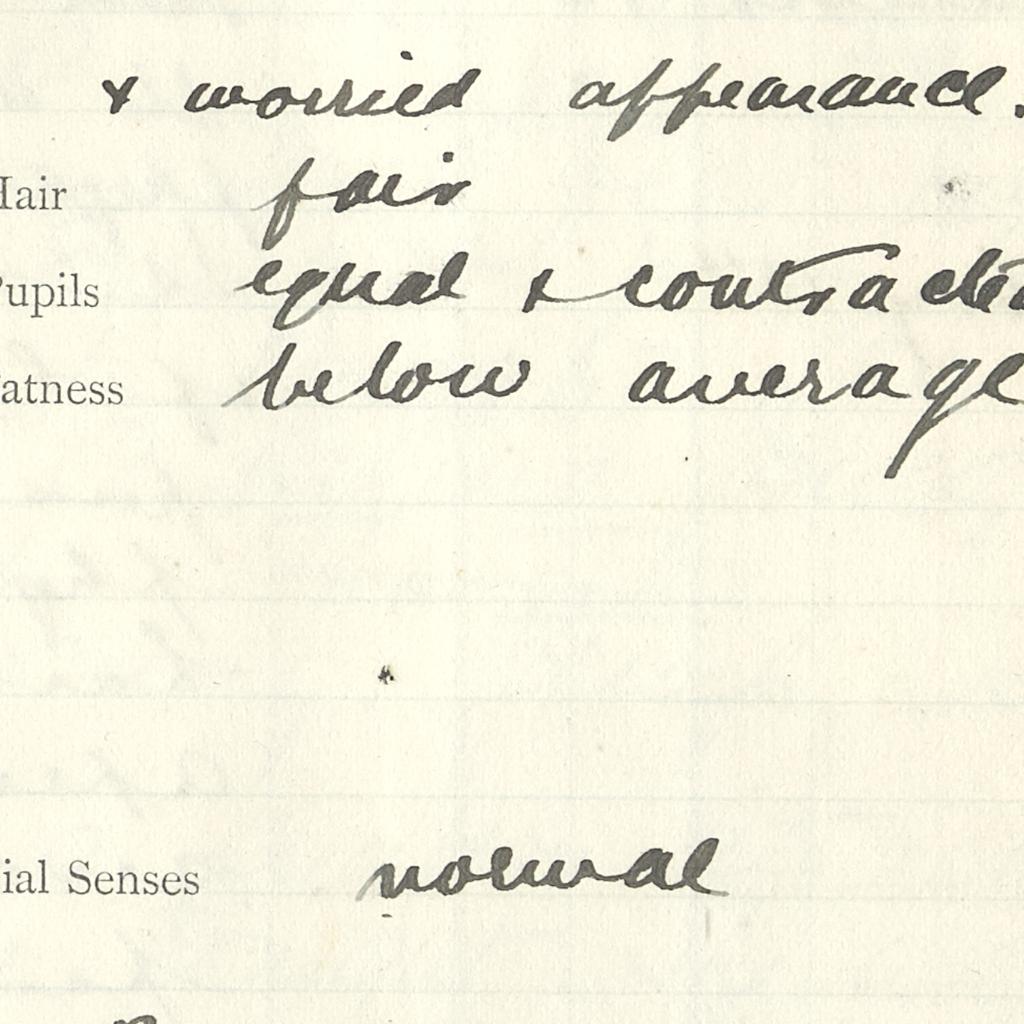 & worried appearance.
Hair fair
Pupils equal & contracted
Fatness below average
ial Senses normal